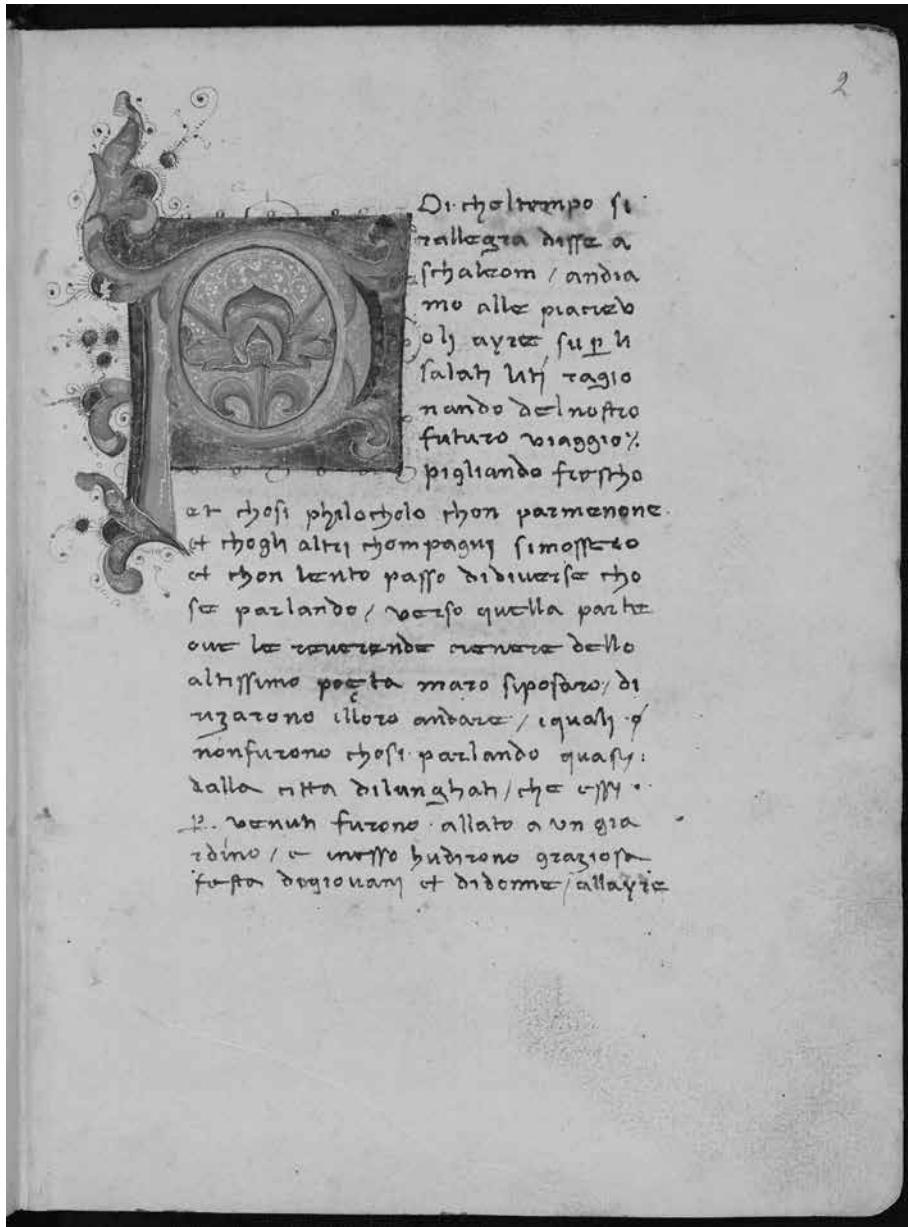 2
P
Oi·cheltempo si·
rallegra disse a
schaleom / andia
mo alle piaciev
olj ayre, su ꝑ li
salati liti ragio
nando delnostro
futuro viaggio٪
pigliando frescho
et chosi philocholo chon parmenone·
et chogli altri chompagni simossero
et chon lento passo didiverse cho
se parlando / verso quella parte
oue le reuerende cienere dello
altissimo poęta maro siposaro / di
rizarono illoro andare / iquali
nonfurono chosi·parlando quasy:
dalla citta dilunghati / che essy·
ꝑ. venuti furono·allato a un gia
rdino / e inesso hudirono graziosa
festa degiovani et didonne / allayre